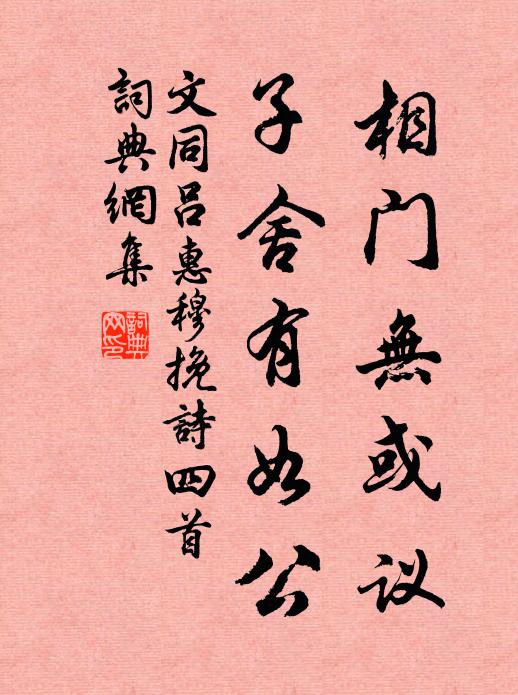 相门無或议
子舍有如公
文同吕惠穆挽詩四首
詞典網集
詞典網印